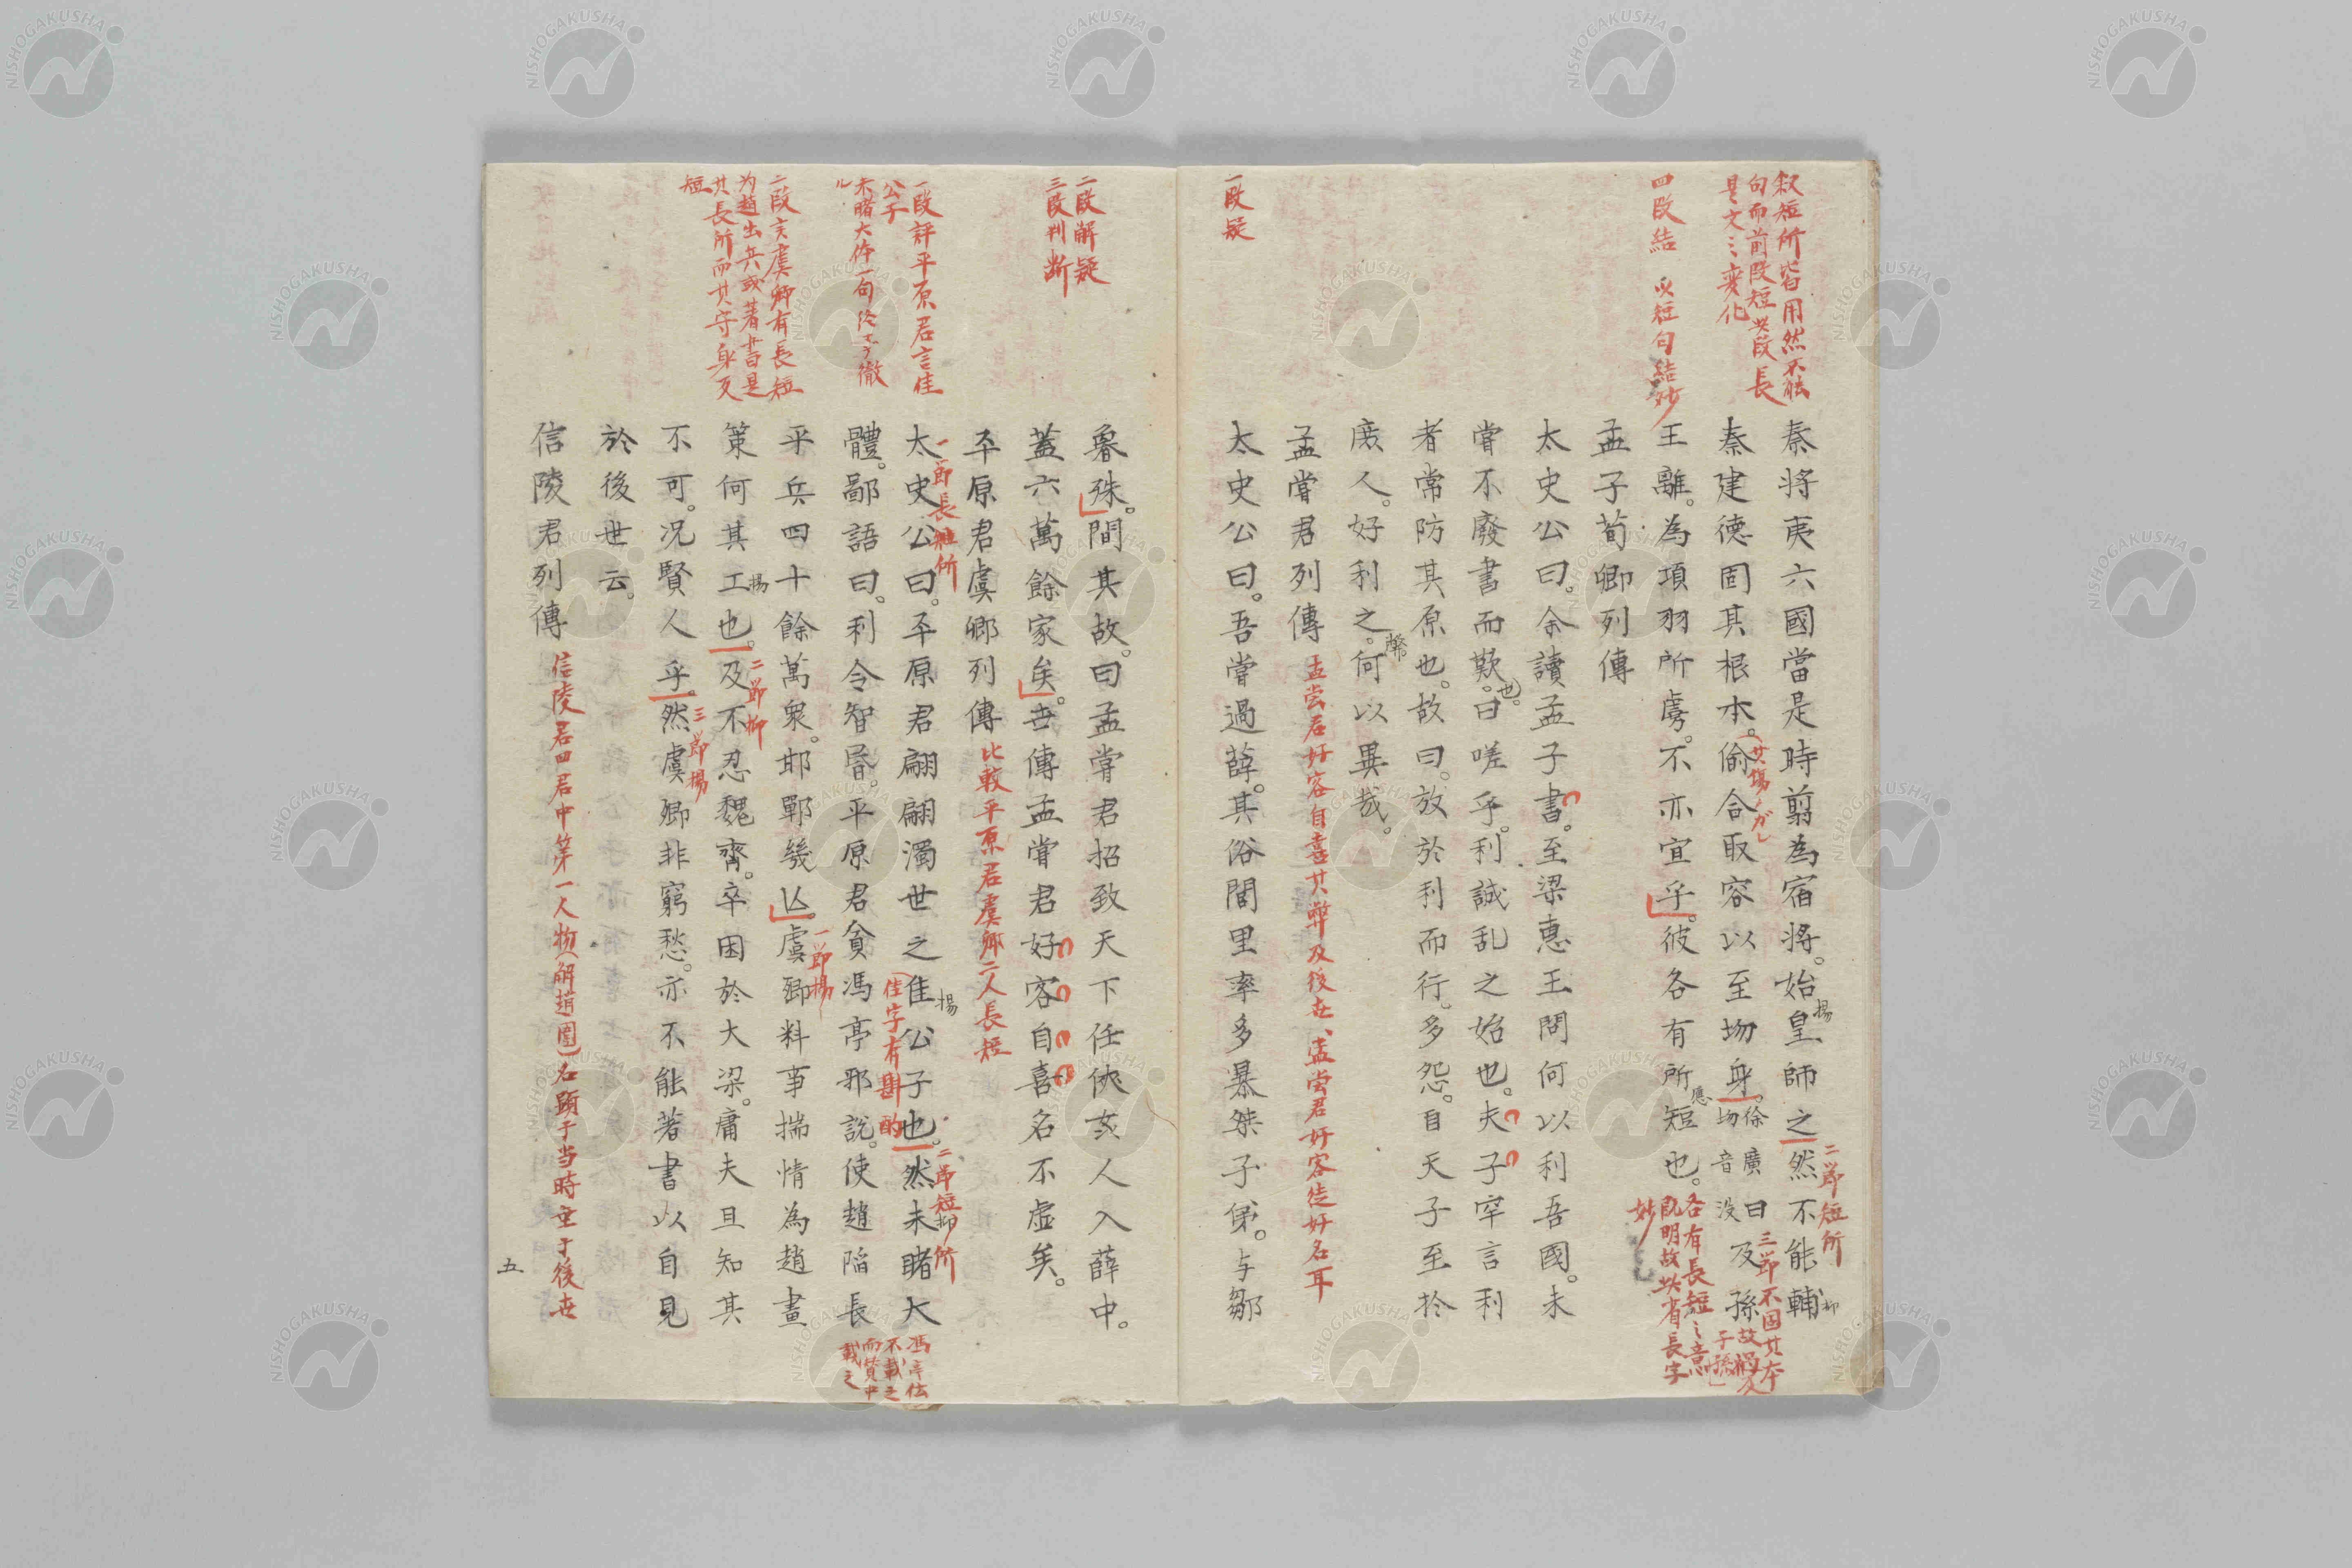 叙短所皆用然不能
句而前段短此段長
是文之変化
四段結 以短句結妙
一段疑
秦將夷六國當是時翦為宿將。始皇師之然不能輔
揚
二節短所
抑
秦建德固其根本。偷合取容以至圽身。徐廣曰圽音没及孫
三節不固其本
故禍及
子孫
王離。為項羽所虜。不亦宜乎。彼各有所短也。
各有長短之意
既明故此省長字
妙
孟子荀卿列傳
太史公曰。余讀孟子書。至梁惠王問何以利吾國。未
嘗不廢書而歎。曰嗟乎。利誠乱之始也。夫子罕言利
也。
者常防其原也。故曰。放於利而行。多怨。自天子至於
庶人。好利之。何以異哉。
孟嘗君列傳
孟嘗君好客自喜其弊及後世、孟嘗君好客徒好名耳
太史公曰。吾嘗過薛。其俗閭里率多暴桀子弟。与鄒
二段解疑
三段判断
一段評平原君言佳
公子
未睹大体一句
二段言虞卿有長短
为趙出兵或著書是
其長所而其守身又
短
魯殊。間其故。曰孟嘗君招致天下任俠亥人入薛中。
蓋六萬餘家矣。世傳孟嘗君好客自喜名不虛矣。
平原君虞卿列傳
比較平原君虞卿二人長短
太史公曰。平原君翩翩濁世之佳公子也。然未睹大
揚
二節短抑所
體。鄙語曰。利令智昏。平原君貪馮亭邪說。使趙陷長
馮亭伝
不載之
而賛中
載之
平兵四十餘萬衆。邯鄲幾亾。虞卿料事揣情為趙畫
一節揚
策何其工也。及不忍魏齊。卒困於大梁。庸夫且知其
揚
二節抑
不可。况賢人乎。然虞卿非窮愁。亦不能著書以自見
三節揚
於後世云。
信陵君列傳
信陵君四君中第一人物(解趙圍)名顕于当時垂于後世
五